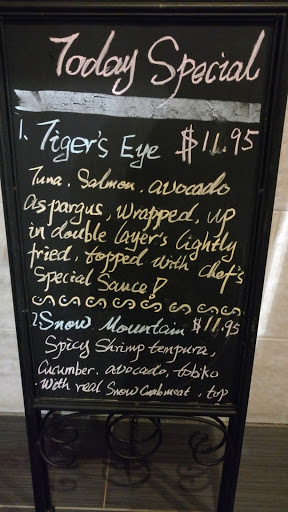 Today Special
1. Tiger's Eye $11.95
Tuna. Salmon. avocado
aspargus, wrapped, up
in double layer's lightly
fried, topped with chef's
Special Sauce!
2. Snow Mountain $11.95
Spicy Shrimp tempura,
Cucumber. avocado, tobiko
. With real Snow Crabmeat, top